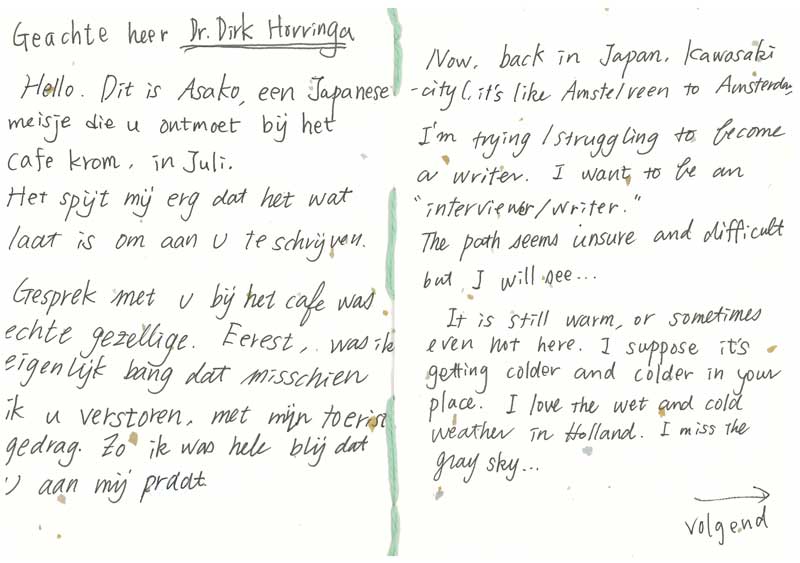 Geachte heer Dr. Dirk Horringa
Hello. Dit is Asako, een Japanese
meisje die u ontmoet bij het
cafe krom, in Juli.
Het spijt mij erg dat het wat
laat is om aan u te schrijven.
Gesprek met u bij het cafe was
echte gezellige. Eerest, was ik
eigenlijk bang dat misschien
ik u verstoren, met mijn toerist
gedrag. Zo ik was hele blij dat
U aan mij praat.
Now, back in Japan, Kawasaki
-city (it's like Amstelveen to Amsterdam,
I'm trying/struggling to become
a writer. I want to be an
"interviewer/writer."
The path seems unsure and difficult
but I will see...
It is still warm, or sometimes
even hot here. I suppose it's
getting colder and colder in your
place. I love the wet and cold
weather in Holland. I miss the
gray sky...
volgend